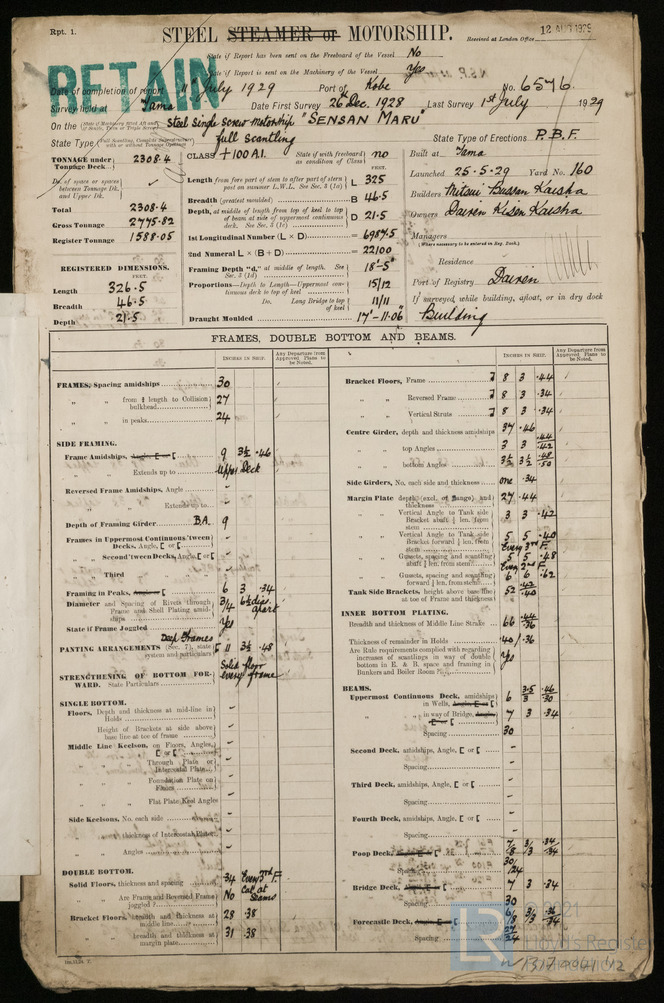 Rpt. 1.
STEEL STEAMER OR MOTORSHIP.
Received at London Office
12 AUG 1929
State if Report has been sent on the Freeboard of the Vessel No
State if Report is sent on the Machinery of the Vessel Yes
RETAIN
Date of completion of report 11 July 1929 Port of Kobe No. 6576
Survey held at Tama Date First Survey 26th Dec. 1928 Last Survey 1st July 1929
On the Steel Single Screw Motorship "SENSAN MARU"
State Type full scantling State Type of Erections P.B.F.
TONNAGE under Tonnage Deck 2308.4
Do. of space or spaces between Tonnage Dk. and Upper Dk.
Total 2308.4
Gross Tonnage 2775.82
Register Tonnage 1588.05
REGISTERED DIMENSIONS.
FEET.
Length 326.5
Breadth 46.5
Depth 21.5
CLASS +100A1. State if with freeboard as condition of Class no
FEET.
Length from fore part of stem to after part of stern post on summer L.W.L. See Sec. 3 (1a) L 325
Breadth (greatest moulded) B 46.5
Depth, at middle of length from top of keel to top of beam at side of uppermost continuous deck. See Sec. 3 (1c) D 21.5
1st Longitudinal Number (L × D) = 6987.5
2nd Numeral L × (B + D) = 22100
Framing Depth "d," at middle of length. See Sec. 3 (1d) = 18'-5"
Proportions—Depth to Length—Uppermost continuous deck to top of keel 15/12
Do. Long Bridge to top of keel 11/11
Draught Moulded 17'-11.06"
Built at Tama
Launched 25-5-29 Yard No. 160
Builders Mitsui Bussan Kaisha
Owners Dairen Kisen Kaisha
Managers
(Where necessary to be entered in Reg. Book.)
Residence
Port of Registry Dairen
If surveyed while building, afloat, or in dry dock
Building
FRAMES, DOUBLE BOTTOM AND BEAMS.
INCHES IN SHIP.
Any Departure from Approved Plans to be Noted.
FRAMES, Spacing amidships 30
" " from ⅕ length to Collision bulkhead 27
" " in peaks 24
SIDE FRAMING.
Frame Amidships, Angle, E or [ 9 3½ .46
" " Extends up to Upper Deck
Reversed Frame Amidships, Angle -
" " Extends up to -
Depth of Framing Girder B.A. 9
Frames in Uppermost Continuous 'tween Decks, Angle, [ or [ -
" Second 'tween Decks, Angle, [ or [ -
" Third " " -
Framing in Peaks, Angle or [ 6 3 .34
Diameter and Spacing of Rivets through Frame and Shell Plating amidships 3/4 6½ dia. apart
State if Frame Joggled Yes
PANTING ARRANGEMENTS (Sec. 7), state system and particulars Deep Frames 11 3½ .48
STRENGTHENING OF BOTTOM FORWARD. State Particulars Solid floor every frame
SINGLE BOTTOM.
Floors, Depth and thickness at mid-line in Holds -
" Height of Brackets at side above base line at toe of frame -
Middle Line Keelson, on Floors, Angles, [ or [ -
" " Through Plate or Intercostal Plate -
" " Foundation Plate on Floors -
" " Flat Plate Keel Angles -
Side Keelsons, No. each side -
" " thickness of Intercostal Plates -
" " Angles -
DOUBLE BOTTOM.
Solid Floors, thickness and spacing .34 Every 3rd F.
" " Are Frame and Reversed Frame joggled? No Cut at Seams
Bracket Floors, breadth and thickness at middle line 28 .38
" " breadth and thickness at margin plate 31 .38
INCHES IN SHIP.
Any Departure from Approved Plans to be Noted.
Bracket Floors, Frame 8 3 .44
" " Reversed Frame 8 3 .34
" " Vertical Struts 8 3 .34
Centre Girder, depth and thickness amidships 37 .46
" " top Angles 3 3 .44 .42
" " bottom Angles 3½ 3½ .48 .50
Side Girders, No. each side and thickness one .34
Margin Plate depth (excl. of flange) and thickness 27 .44
" " Vertical Angle to Tank side Bracket abaft ¼ len. from stem 3 3 .42
" " Vertical Angle to Tank side Bracket forward ¼ len. from stem 5 5 .40
" " Gussets, spacing and scantling abaft ¼ len. from stem Every 3rd F. 5 5 .48
" " Gussets, spacing and scantling forward ¼ len. from stem Every 2nd F. 6 6 .62
Tank Side Brackets, height above base line at toe of Frame and thickness 52 .42 .40
INNER BOTTOM PLATING.
Breadth and thickness of Middle Line Strake 66 .44 .36
Thickness of remainder in Holds .40 .36
Are Rule requirements complied with regarding increases of scantlings in way of double bottom in E. & B. space and framing in Bunkers and Boiler Room Yes
BEAMS.
Uppermost Continuous Deck, amidships in Wells, Angle, E or [ 6 3.5 3 .46 .30
" " in way of Bridge, Angle, E or [ 7 3 .34
Spacing 30
Second Deck, amidships, Angle, [ or [ -
Spacing -
Third Deck, amidships, Angle, [ or [ -
Spacing -
Fourth Deck, amidships, Angle, [ or [ -
Spacing -
Poop Deck, Angle, E or [ 7/8 3/3 .34/.34
Spacing 30/24
Bridge Deck, Angle, E or [ 7 3 .34
Spacing 30
Forecastle Deck, Angle, E or [ 6/8 3/3 .36/.34
Spacing 27/24
© 2021
LR
Lloyd's Register